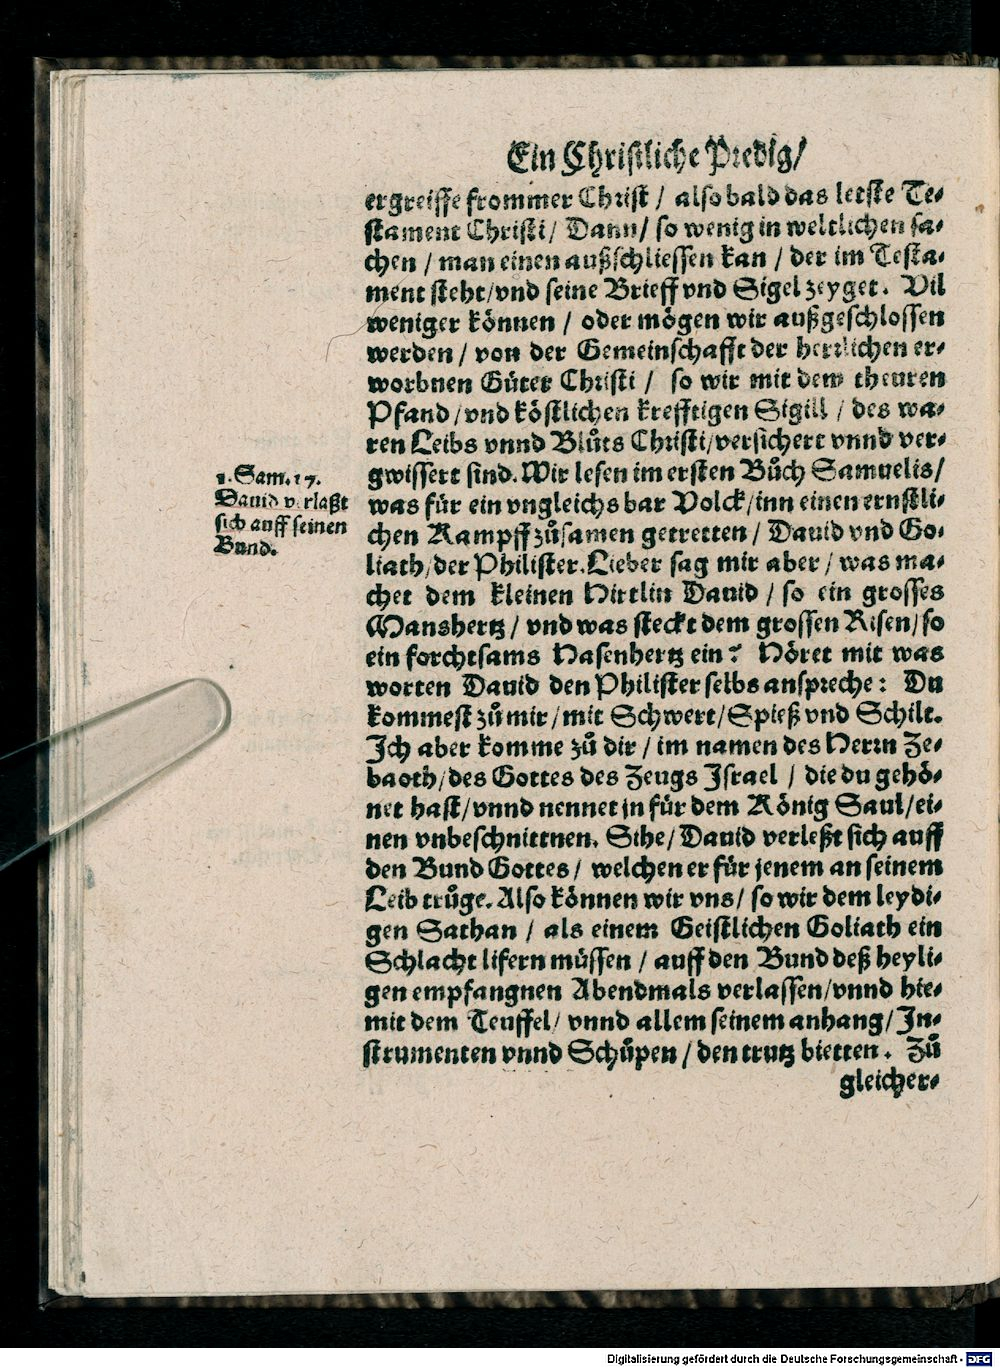 Ein Christliche Predig/
ergreiffe frommer Christ / also bald das letste Te⸗
stament Christi / Dann / so wenig in weltlichen sa⸗
chen / man einen außschliessen kan / der im Testa⸗
ment steht/vnd seine Brieff vnd Sigel zeyget. Vil
weniger können / oder mögen wir außgeschlossen
werden / von der Gemeinschafft der herrlichen er⸗
worbnen Güter Christi / so wir mit dem theuren
Pfand/vnd köstlichen krefftigen Sigill / des wa⸗
ren Leibs vnnd Blůts Christi/versichert vnnd ver⸗
gwissert sind. Wir lesen im ersten Bůch Samuelis/
1. Sam. 17.
Dauid verlaßt
sich auff seinen
Bund.
was für ein vngleichs bar Volck/inn einen ernstli⸗
chen Kampff zůsamen getretten / Dauid vnd Go⸗
liath/der Philister. Lieber sag mir aber / was ma⸗
chet dem kleinen Hirtlin Dauid / so ein grosses
Manshertz / vnd was steckt dem grossen Risen/ so
ein forchtsams Hasenhertz ein? Höret mit was
worten Dauid den Philister selbs anspreche: Du
kommest zů mir/mit Schwert/Spieß vnd Schilt.
Ich aber komme zů dir / im namen des Herrn Ze⸗
baoth/des Gottes des Zeugs Israel / die du gehö⸗
net hast/vnnd nennet jn für dem König Saul/ei⸗
nen vnbeschnittnen. Sihe/ Dauid verleßt sich auff
den Bund Gottes / welchen er für jenem an seinem
Leib trůge. Also können wir vns/ so wir dem leydi⸗
gen Sathan / als einem Geistlichen Goliath ein
Schlacht lifern müssen / auff den Bund deß heyli⸗
gen empfangnen Abendmals verlassen/vnnd hie⸗
mit dem Teuffel/ vnnd allem seinem anhang/ In⸗
strumenten vnnd Schůpen / den trutz bietten. Zů
gleicher⸗
Digitalisierung gefördert durch die Deutsche Forschungsgemeinschaft - DFG